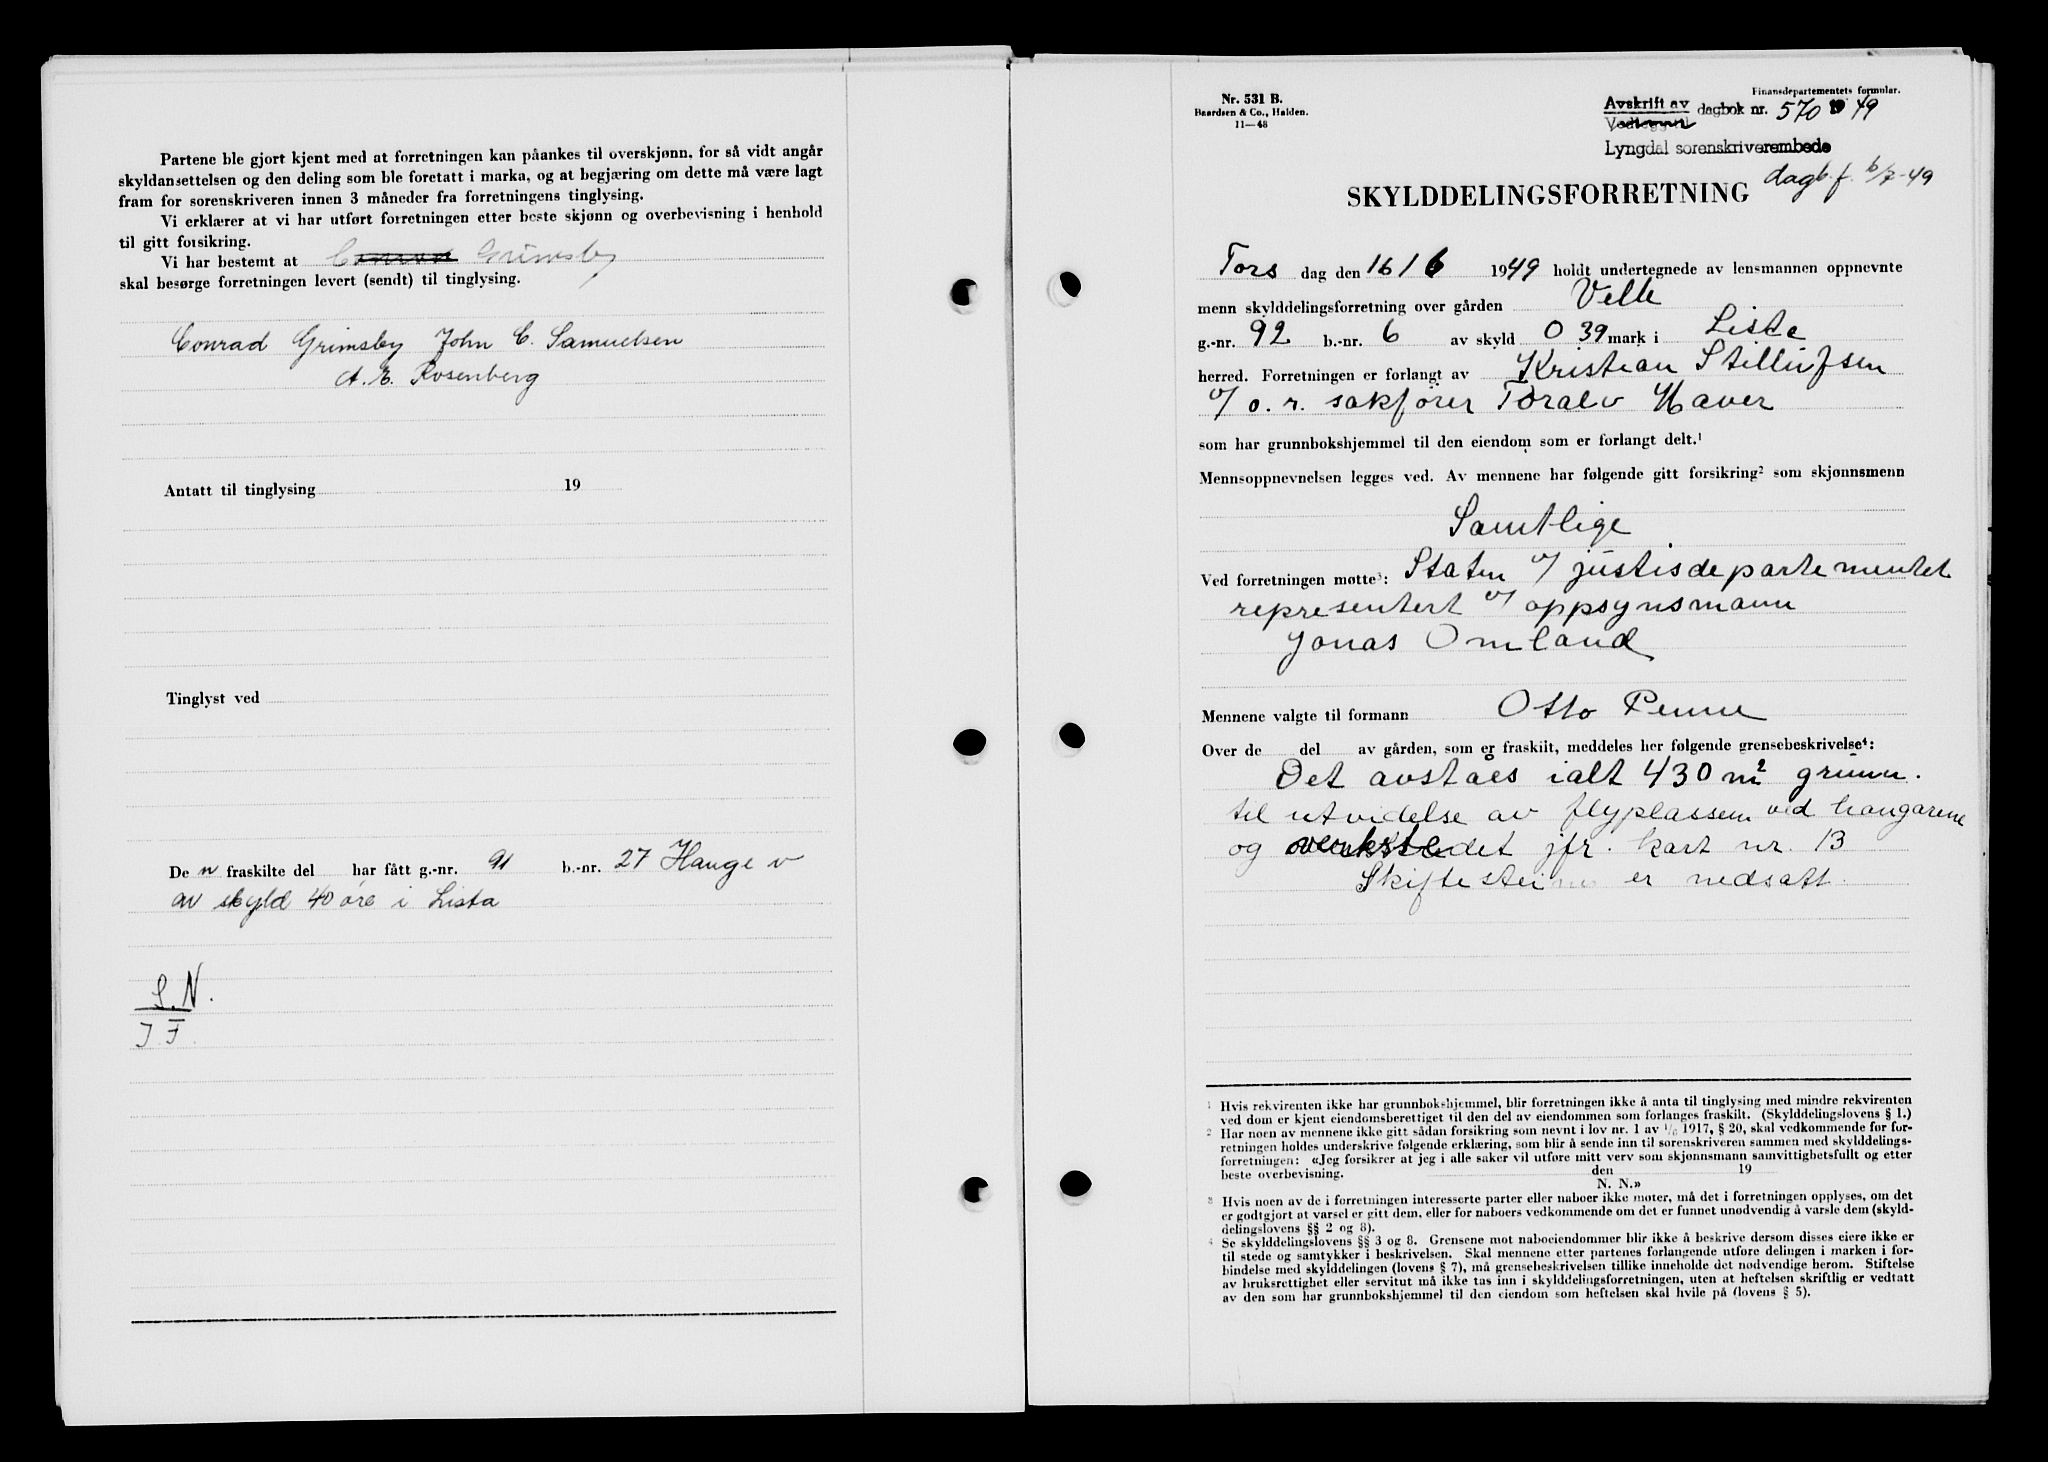 Partene ble gjort kjent med at forretningen kan påankes til overskjønn, for så vidt angår
skyldansettelsen og den deling som ble foretatt i marka, og at begjæring om dette må være lagt
fram for sorenskriveren innen 3 måneder fra forretningens tinglysing.
Vi erklærer at vi har utført forretningen etter beste skjønn og overbevisning i henhold
til gitt forsikring.
Vi har bestemt at Conrad Grimsby
skal besørge forretningen levert (sendt) til tinglysing.
Conrad Grimsby John C. Samuelsen
A. E. Rosenberg
Antatt til tinglysing 19
Tinglyst ved
De n fraskilte del har fått g.-nr. 91 b.-nr. 27 Hauge v
av skyld 40 øre i Lista
S.N.
J.F.
Nr. 531 B.
Baardsen & Co., Halden.
11—48
Finansdepartementets formular.
Avskrift av dagbok nr. 570 19 49
Vedlegg til
Lyngdal sorenskriverembede
dagb.f. 6/7-49
SKYLDDELINGSFORRETNING
Tors dag den 16/6 1949 holdt undertegnede av lensmannen oppnevnte
menn skylddelingsforretning over gården Velle
g.-nr. 92 b.-nr. 6 av skyld 0 39 mark i Lista
herred. Forretningen er forlangt av Kristian Stellufsen
v/ o. r. sakfører Toralv Haver
som har grunnbokshjemmel til den eiendom som er forlangt delt.¹
Mennsoppnevnelsen legges ved. Av mennene har følgende gitt forsikring² som skjønnsmenn
Samtlige
Ved forretningen møtte³: Staten v/ justisdepartementet
representert v/ oppsynsmann
Jonas Omland
Mennene valgte til formann Otto Penne
Over de del av gården, som er fraskilt, meddeles her følgende grensebeskrivelse⁴:
Det avståes ialt 430 m² grunn.
til utvidelse av flyplassen ved hangarene
og verkstedet jfr. kart nr. 13
Skiftesteine er nedsatt.
¹ Hvis rekvirenten ikke har grunnbokshjemmel, blir forretningen ikke å anta til tinglysing med mindre rekvirenten
ved dom er kjent eiendomsberettiget til den del av eiendommen som forlanges fraskilt. (Skylddelingslovens § 1.)
² Har noen av mennene ikke gitt sådan forsikring som nevnt i lov nr. 1 av 1/6 1917, § 20, skal vedkommende før for-
retningen holdes underskrive følgende erklæring, som blir å sende inn til sorenskriveren sammen med skylddelings-
forretningen: «Jeg forsikrer at jeg i alle saker vil utføre mitt verv som skjønnsmann samvittighetsfullt og etter
beste overbevisning. den 19
N. N.»
³ Hvis noen av de i forretningen interesserte parter eller naboer ikke møter, må det i forretningen opplyses, om det
er godtgjort at varsel er gitt dem, eller for naboers vedkommende om det er funnet unødvendig å varsle dem (skyld-
delingslovens §§ 2 og 8).
⁴ Se skylddelingslovens §§ 3 og 8. Grensene mot naboeiendommer blir ikke å beskrive dersom disses eiere ikke er
til stede og samtykker i beskrivelsen. Skal mennene etter partenes forlangende utføre delingen i marken i for-
bindelse med skylddelingen (lovens § 7), må grensebeskrivelsen tillike inneholde det nødvendige herom. Stiftelse
av bruksrettighet eller servitut må ikke tas inn i skylddelingsforretningen, uten at heftelsen skriftlig er vedtatt
av den som har grunnbokshjemmel til den eiendom som heftelsen skal hvile på (lovens § 5).